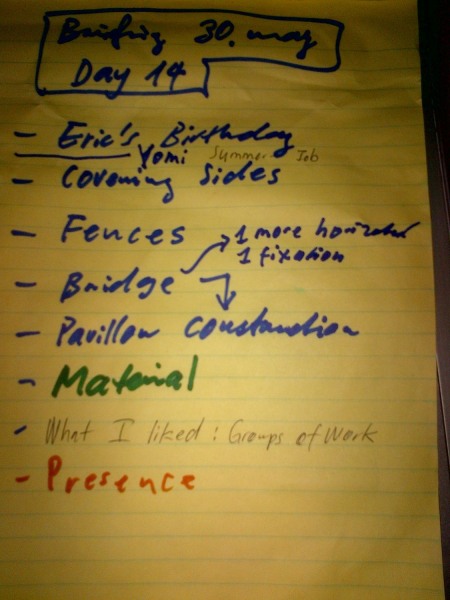 Briefing 30. may
Day 14
- Eric's Birthday
Yomi Summer Job
- Covering Sides
- Fences
1 more horizontal
1 fixation
- Bridge
- Pavillon Constanction
- Material
- What I liked : Groups of Work
- Presence